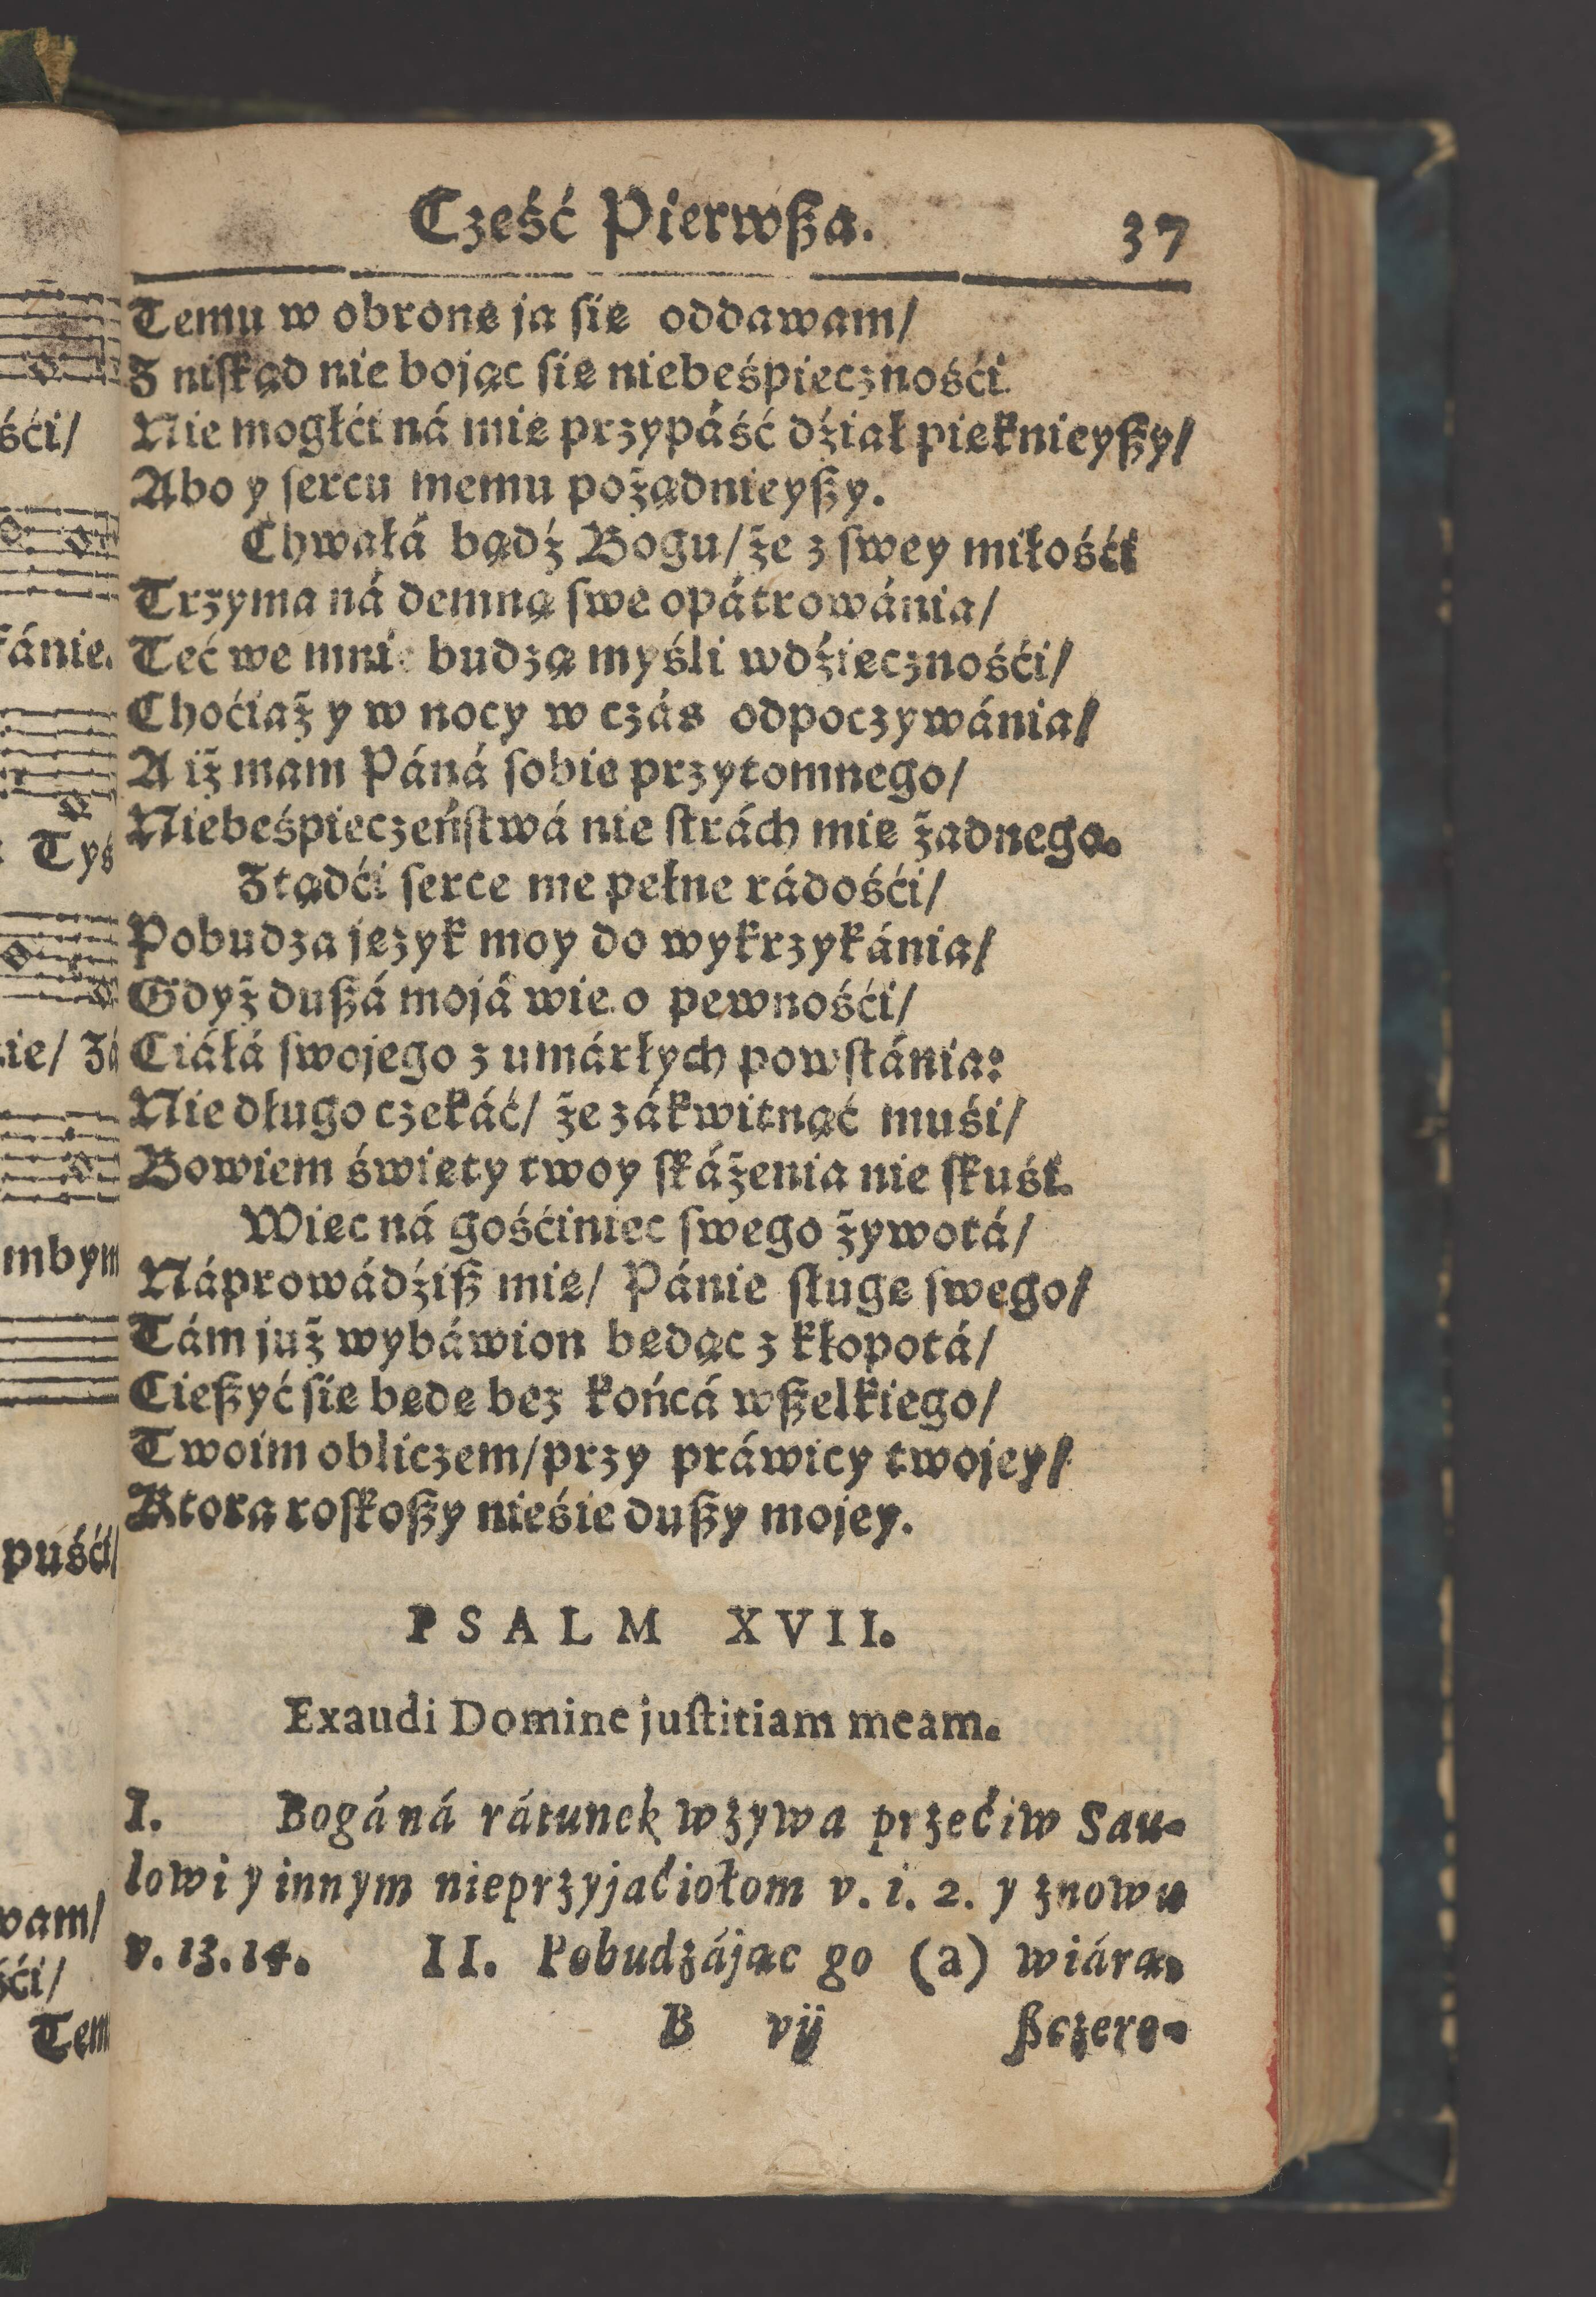 Cżeść Pierwßa. 37
Temu w obronę ja się oddawam/
Z niſkąd nie bojąc się niebeśpiecznośći.
Nie mogłći ná mię przypáść dźiał pięknieyßy/
Abo y ſercu memu pożądnieyßy.
Chwałá bądź Bogu/ że z ſwey miłośći
Trzyma ná demną ſwe opátrowánia/
Teć we mnie budzą myśli wdźięcznośći/
Choćiaż y w nocy w czás odpoczywánia/
A iż mam Páná ſobie przytomnego/
Niebeśpieczeńſtwá nie ſtrách mię żadnego.
Ztądći ſerce me pełne rádośći/
Pobudza język moy do wykrzykánia/
Gdyż dußá mojá wie o pewnośći/
Ciáłá ſwojego z umárłych powſtánia:
Nie długo czekáć/ że zákwitnąć muśi/
Bowiem święty twoy ſkáżenia nie ſkuśi.
Więc ná gośćiniec ſwego żywotá/
Náprowádźiß mię/ Pánie ſługę ſwego/
Tám już wybáwion będąc z kłopotá/
Cießyć się będę bez końcá wßelkiego/
Twoim obliczem/ przy práwicy twojey/
Ktora roſkoßy nieśie dußy mojey.
PSALM XVII.
Exaudi Domine juſtitiam meam.
I. Bogá ná rátunek wzywa przećiw Sau-
lowi y innym nieprzyjaćiołom v. i. 2. y znowu
v. 13. 14. II. Pobudzájąc go (a) wiárą,
B vij ßczere-
śći/
fánie.
Tyś
nie/ Zá
mbym
puśći/
wam/
śći/
Tem